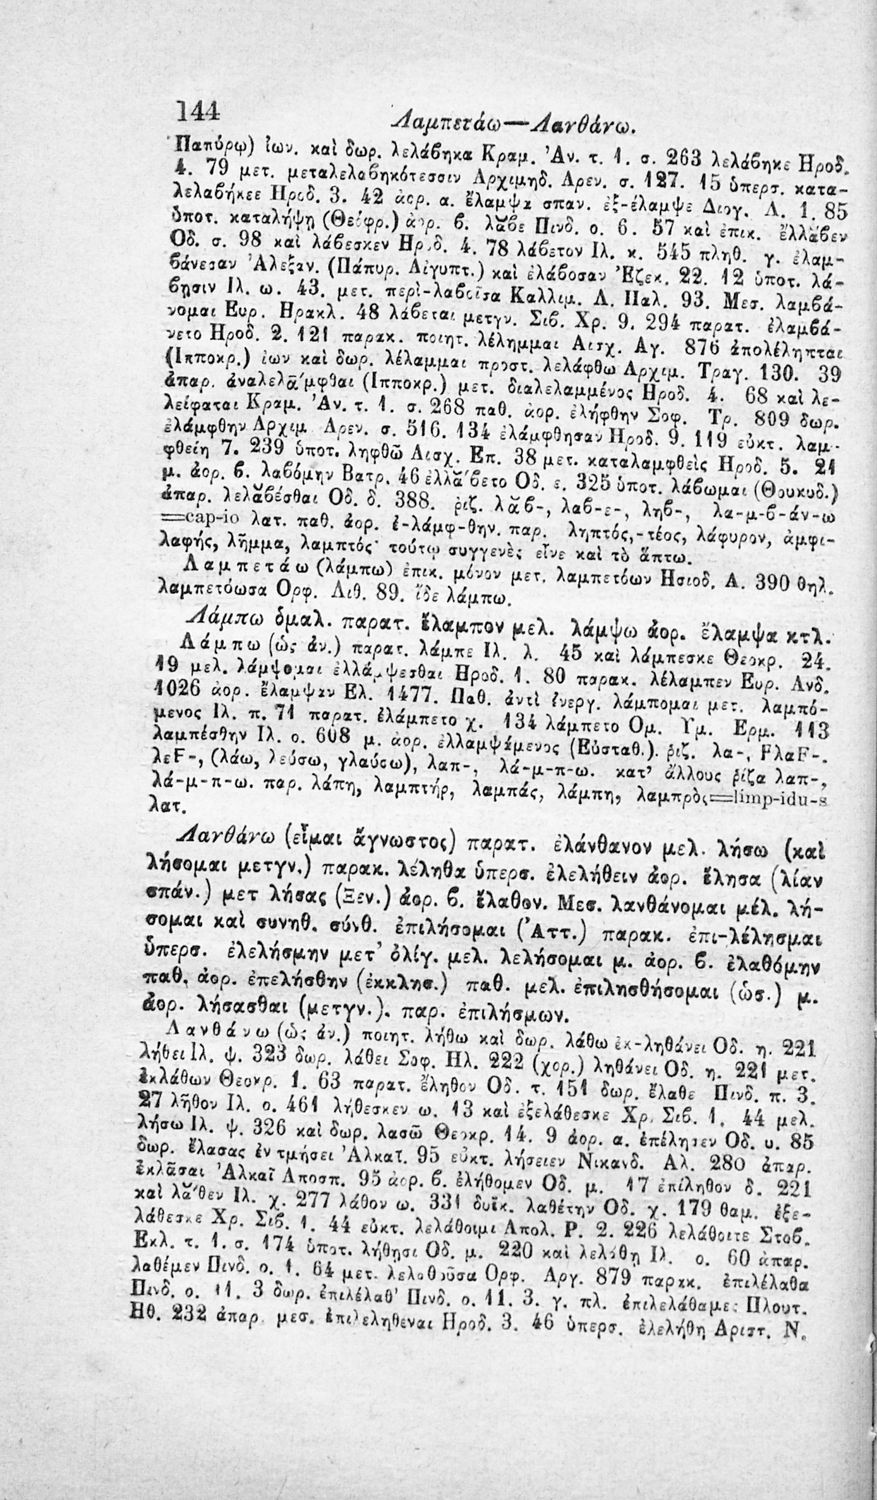 144
Λαμπετάω—Λανθάνω.
Παπύρῳ) ἰων. καὶ δωρ. λελάβηκα Κραμ. Ἀν. τ. 1. σ. 263 λελάβηκε Ηροδ.
4. 79 μετ. μεταλελαβηκότεσσιν Αρχιμηδ. Αρεν. σ. 127. 15 ὑπερσ. κατα-
λελαβήκεε Ηροδ. 3. 42 ἀορ. α. ἔλαμψα σπαν. ἐξ-έλαμψε Διογ. Λ. 1. 85
ὑποτ. καταλήψῃ (Θεόφρ.) ἀορ. β. λᾰβε Πινδ. ο. 6. 57 καὶ ἐπικ. ἔλλᾰβεν
Οδ. σ. 98 καὶ λάβεσκεν Ηροδ. 4. 78 λάβετον Ιλ. κ. 545 πληθ. γ. ἐλαμ-
βάνεσαν Ἀλεξαν. (Πάπυρ. Αἰγυπτ.) καὶ ἐλάβοσαν Ἐζεκ. 22. 12 ὑποτ. λά-
βησιν Ιλ. ω. 43. μετ. περὶ-λαβοῖσα Καλλιμ. Λ. Παλ. 93. Μεσ. λαμβά-
νομαι Ευρ. Ηρακλ. 48 λάβεται μετγν. Σιβ. Χρ. 9. 294 παρατ. ἐλαμβά-
νετο Ηροδ. 2. 121 παρακ. ποιητ. λέλημμαι Αισχ. Αγ. 876 ἀπολέληπται
(Ιπποκρ.) ἰων καὶ δωρ. λέλαμμαι προστ. λελάφθω Αρχιμ. Τραγ. 130. 39
ἀπαρ. ἀναλελᾶ΄μφθαι (Ιπποκρ.) μετ. διαλελαμμένος Ηροδ. 4. 68 καὶ λε-
λείφαται Κραμ. Ἀν. τ. 1. σ. 268 παθ. ἀορ. ἐλήφθην Σοφ. Τρ. 809 δωρ.
ἐλάμφθην Αρχιμ Αρεν. σ. 516. 134 ἐλάμφθησαν Ηροδ. 9. 119 εὐκτ. λαμ-
φθείη 7. 239 ὑποτ. ληφθῶ Αισχ. Επ. 38 μετ. καταλαμφθεὶς Ηροδ. 5. 21
μ. ἀορ. β. λαβόμην Βατρ. 46 ἐλλᾰ΄βετο Οδ. ε. 325 ὑποτ. λάβωμαι (Θουκυδ.)
ἀπαρ. λελᾰβέσθαι Οδ. δ. 388. ῥιζ. λᾰβ-, λαβ-ε-, ληβ-, λα-μ-β-άν-ω
=cap-io λατ. παθ. ἀορ. ἐ-λάμφ-θην. παρ. ληπτός,-τέος, λάφυρον, ἀμφι-
λαφής, λῆμμα, λαμπτός· τούτῳ συγγενὲς εἶνε καὶ τὸ ἅπτω.
Λαμπετάω (λάμπω) ἐπικ. μόνον μετ. λαμπετόων Ησιοδ. Α. 390 θηλ.
λαμπετόωσα Ορφ. Λιθ. 89. ἴδε λάμπω.
Λάμπω ὁμαλ. παρατ. ἔλαμπον μελ. λάμψω ἀορ. ἔλαμψα κτλ.
Λάμπω (ὡς ἀν.) παρατ. λάμπε Ιλ. λ. 45 καὶ λάμπεσκε Θεοκρ. 24.
19 μελ. λάμψομαι ἐλλάμψεσθαι Ηροδ. 1. 80 παρακ. λέλαμπεν Ευρ. Ανδ.
1026 ἀορ. ἔλαμψαν Ελ. 1477. Παθ. ἀντὶ ἐνεργ. λάμπομαι μετ. λαμπό-
μενος Ιλ. π. 71 παρατ. ἐλάμπετο χ. 134 λάμπετο Ομ. Υμ. Ερμ. 113
λαμπέσθην Ιλ. ο. 608 μ. ἀορ. ἐλλαμψάμενος (Εὐσταθ.). ῥιζ. λα-, FλαF-.
λεF-, (λάω, λεύσω, γλαύσω), λαπ-, λά-μ-π-ω. κατ' ἄλλους ῥίζα λαπ-,
λά-μ-π-ω. παρ. λάπη, λαμπτήρ, λαμπάς, λάμπη, λαμπρὸς=limp-idu-s
λατ.
Λανθάνω (εἶμαι ἄγνωστος) παρατ. ἐλάνθανον μελ. λήσω (καὶ
λήσομαι μετγν.) παρακ. λέληθα ὑπερσ. ἐλελήθειν ἀορ. ἔλησα (λίαν
σπάν.) μετ λήσας (Ξεν.) ἀορ. β. ἔλαθον. Μεσ. λανθάνομαι μέλ. λή-
σομαι καὶ συνηθ. σύνθ. ἐπιλήσομαι (Ἀττ.) παρακ. ἐπι-λέλησμαι
ὑπερσ. ἐλελήσμην μετ' ὀλίγ. μελ. λελήσομαι μ. ἀορ. β. ἐλαθόμην
παθ. ἀορ. ἐπελήσθην (ἐκκλησ.) παθ. μελ. ἐπιλησθήσομαι (ὡσ.) μ.
ἀορ. λήσασθαι (μετγν.). παρ. ἐπιλήσμων.
Λανθάνω (ὡς ἀν.) ποιητ. λήθω καὶ δωρ. λάθω ἐκ-ληθάνει Οδ. η. 221
λήθει Ιλ. ψ. 323 δωρ. λάθει Σοφ. Ηλ. 222 (χορ.) ληθάνει Οδ. η. 221 μετ.
ἐκλάθων Θεοκρ. 1. 63 παρατ. ἔληθον Οδ. τ. 151 δωρ. ἔλαθε Πινδ. π. 3.
27 λῆθον Ιλ. ο. 461 λήθεσκεν ω. 13 καὶ ἐξελάθεσκε Χρ. Σιβ. 1. 44 μελ.
λήσω Ιλ. ψ. 326 καὶ δωρ. λασῶ Θεοκρ. 14. 9 ἀορ. α. ἐπέλησεν Οδ. υ. 85
δωρ. ἔλασας ἐν τμήσει Ἀλκαῖ. 95 εὐκτ. λήσειεν Νικανδ. Αλ. 280 ἀπαρ.
ἐκλᾶσαι Ἀλκαῖ Αποσπ. 95 ἀορ. β. ἐλήθομεν Οδ. μ. 17 ἐπίληθον δ. 221
καὶ λᾰ΄θεν Ιλ. χ. 277 λάθον ω. 331 δυϊκ. λαθέτην Οδ. χ. 179 θαμ. ἐξε-
λάθεσκε Χρ. Σιβ. 1. 44 εὐκτ. λελάθοιμι Απολ. Ρ. 2. 226 λελάθοιτε Στοβ.
Εκλ. τ. 1. σ. 174 ὑποτ. λήθησι Οδ. μ. 220 καὶ λελάθῃ Ιλ. ο. 60 ἀπαρ.
λαθέμεν Πινδ. ο. 1. 64 μετ. λελαθοῦσα Ορφ. Αργ. 879 παρακ. ἐπιλέλαθα
Πινδ. ο. 11. 3 δωρ. ἐπιλέλαθ' Πινδ. ο. 11. 3. γ. πλ. ἐπιλελάθαμες Πλουτ.
Ηθ. 232 ἀπαρ. μεσ. ἐπιλεληθεναι Ηροδ. 3. 46 ὑπερσ. ἐλελήθη Αριστ. Ν.